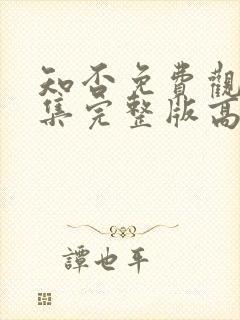 知否免費觀
集完整版高
譚也平